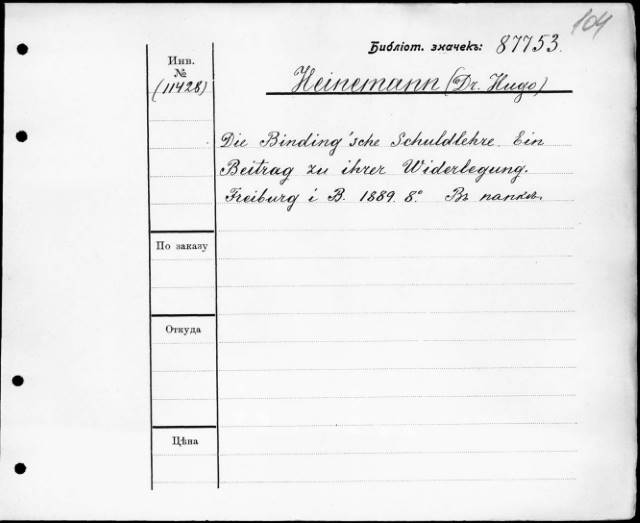 104
Библіот. значекъ: 87753.
Инв.
№
(11428)
Heinemann (Dr. Hugo)
Die Binding'sche Schuldlehre. Ein
Beitrag zu ihrer Widerlegung.
Freiburg i B. 1889. 8° Въ папкѣ.
По заказу
Откуда
Цѣна